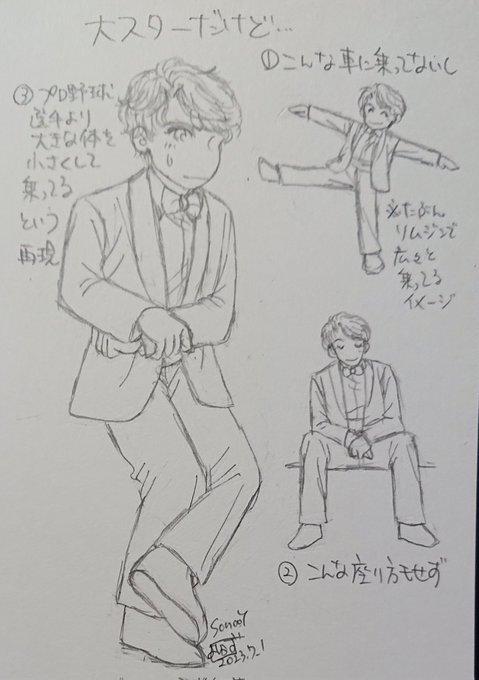 大スターだけど…
①こんな車に乗ってないし
※たぶん
リムジンで
広々と
乗ってる
イメージ
②こんな座り方もせず
③プロ野球
選手より
大きな体を
小さくして
乗ってる
という
再現
2023.7.1